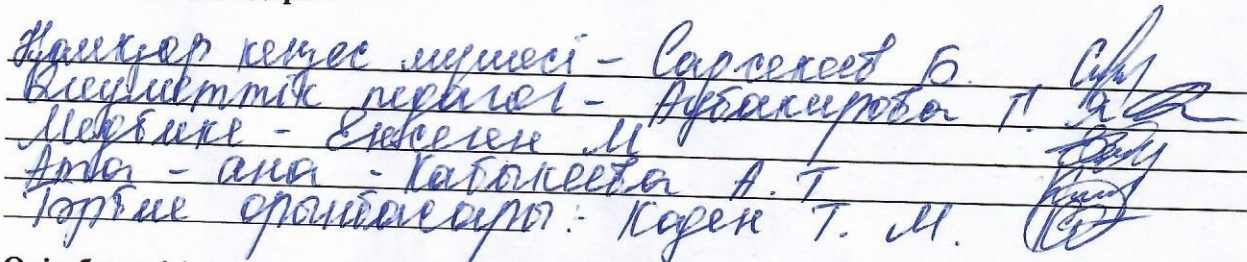 Қамқор кеңес мүшесі - Сарсекеев Б.
Әлеуметтік педагог - Аубакирова Г.
Медбике - Еңсеген М
Ата - ана - Кабыкеева А. Т
Тәрбие орынбасары: Каден Т. М.